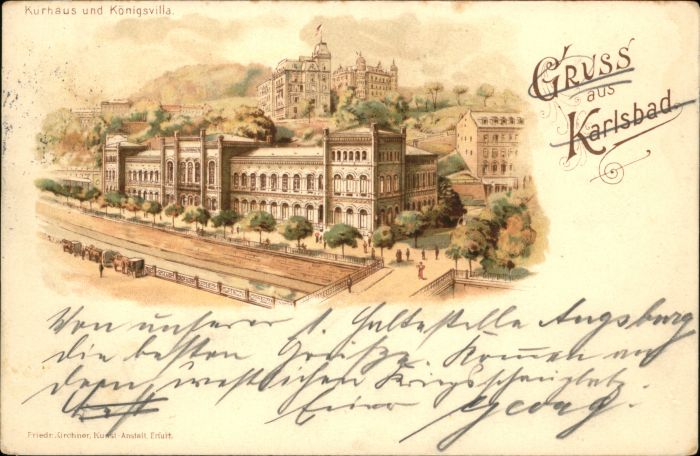 Kurhaus und Königsvilla.
Gruss
aus
Karlsbad.
Von unserer 1. Haltestelle Augsburg
die besten Grüße. Kommen auf
dem westlichen Kriegsschauplatz.
Euer Georg.
Friedr. Kirchner, Kunst-Anstalt, Erfurt.